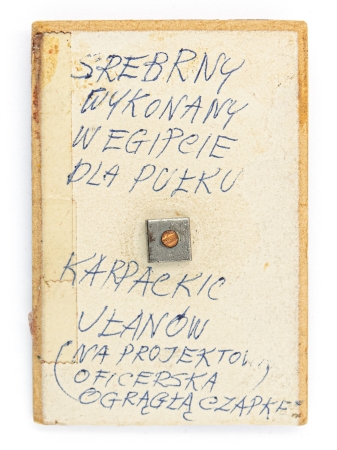 SREBRNY
WYKONANY
W EGIPCIE
DLA PUŁKU
KARPACKIC
UŁANÓW
(NA PROJEKTOW
OFICERSKA
OGRĄGŁĄ CZAPKĘ)